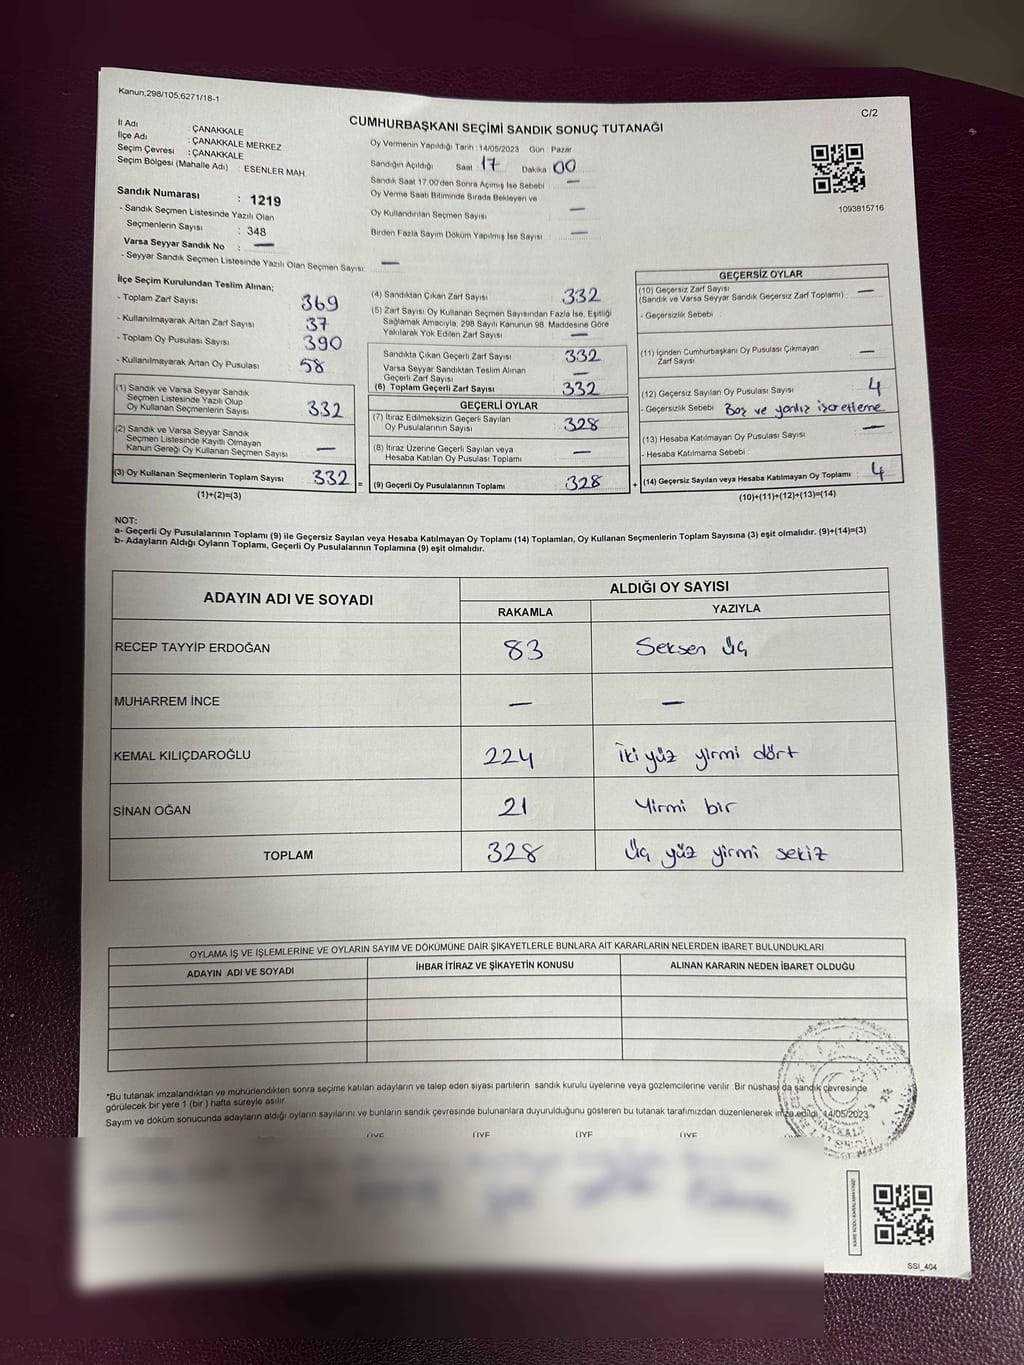 Kanun;298/105,6271/18-1
C/2
CUMHURBAŞKANI SEÇİMİ SANDIK SONUÇ TUTANAĞI
İl Adı : ÇANAKKALE
İlçe Adı : ÇANAKKALE MERKEZ
Seçim Çevresi : ÇANAKKALE
Seçim Bölgesi (Mahalle Adı) ESENLER MAH
Sandık Numarası : 1219
- Sandık Seçmen Listesinde Yazılı Olan
Seçmenlerin Sayısı : 348
Varsa Seyyar Sandık No : —
- Seyyar Sandık Seçmen Listesinde Yazılı Olan Seçmen Sayısı: —
Oy Vermenin Yapıldığı Tarih : 14/05/2023 Gün : Pazar
Sandığın Açıldığı Saat 17 Dakika 00
Sandık Saat 17:00'den Sonra Açımış İse Sebebi : —
Oy Verme Saati Bitiminde Sırada Bekleyen ve
Oy Kullandırılan Seçmen Sayısı : —
Birden Fazla Sayım Döküm Yapılmış İse Sayısı : —
1093815716
İlçe Seçim Kurulundan Teslim Alınan;
- Toplam Zarf Sayısı 369
- Kullanılmayarak Artan Zarf Sayısı 37
- Toplam Oy Pusulası Sayısı 390
- Kullanılmayarak Artan Oy Pusulası 58
(1) Sandık ve Varsa Seyyar Sandık
Seçmen Listesinde Yazılı Olup
Oy Kullanan Seçmenlerin Sayısı 332
(2) Sandık ve Varsa Seyyar Sandık
Seçmen Listesinde Kayıtlı Olmayan
Kanun Gereği Oy Kullanan Seçmen Sayısı —
(3) Oy Kullanan Seçmenlerin Toplam Sayısı 332 =
(1)+(2)=(3)
(4) Sandıktan Çıkan Zarf Sayısı 332
(5) Zarf Sayısı Oy Kullanan Seçmen Sayısından Fazla İse, Eşitliği
Sağlamak Amacıyla, 298 Sayılı Kanunun 98. Maddesine Göre
Yakılarak Yok Edilen Zarf Sayısı —
Sandıkta Çıkan Geçerli Zarf Sayısı 332
Varsa Seyyar Sandıktan Teslim Alınan
Geçerli Zarf Sayısı —
(6) Toplam Geçerli Zarf Sayısı 332
GEÇERLİ OYLAR
(7) İtiraz Edilmeksizin Geçerli Sayılan
Oy Pusulalarının Sayısı 328
(8) İtiraz Üzerine Geçerli Sayılan veya
Hesaba Katılan Oy Pusulası Toplamı —
(9) Geçerli Oy Pusulalarının Toplamı 328 +
GEÇERSİZ OYLAR
(10) Geçersiz Zarf Sayısı
(Sandık ve Varsa Seyyar Sandık Geçersiz Zarf Toplamı) : —
- Geçersizlik Sebebi :
(11) İçinden Cumhurbaşkanı Oy Pusulası Çıkmayan
Zarf Sayısı —
(12) Geçersiz Sayılan Oy Pusulası Sayısı 4
- Geçersizlik Sebebi : Boş ve yanlış işaretleme
(13) Hesaba Katılmayan Oy Pusulası Sayısı —
- Hesaba Katılmama Sebebi :
(14) Geçersiz Sayılan veya Hesaba Katılmayan Oy Toplamı : 4
(10)+(11)+(12)+(13)=(14)
NOT:
a- Geçerli Oy Pusulalarının Toplamı (9) ile Geçersiz Sayılan veya Hesaba Katılmayan Oy Toplamı (14) Toplamları, Oy Kullanan Seçmenlerin Toplam Sayısına (3) eşit olmalıdır. (9)+(14)=(3)
b- Adayların Aldığı Oyların Toplamı, Geçerli Oy Pusulalarının Toplamına (9) eşit olmalıdır.
ADAYIN ADI VE SOYADI
ALDIĞI OY SAYISI
RAKAMLA YAZIYLA
RECEP TAYYİP ERDOĞAN 83 Seksen üç
MUHARREM İNCE — —
KEMAL KILIÇDAROĞLU 224 İki yüz yirmi dört
SİNAN OĞAN 21 Yirmi bir
TOPLAM 328 Üç yüz yirmi sekiz
OYLAMA İŞ VE İŞLEMLERİNE VE OYLARIN SAYIM VE DÖKÜMÜNE DAİR ŞİKAYETLERLE BUNLARA AİT KARARLARIN NELERDEN İBARET BULUNDUKLARI
ADAYIN ADI VE SOYADI İHBAR İTİRAZ VE ŞİKAYETİN KONUSU ALINAN KARARIN NEDEN İBARET OLDUĞU
*Bu tutanak imzalandıktan ve mühürlendikten sonra seçime katılan adayların ve talep eden siyasi partilerin sandık kurulu üyelerine veya gözlemcilerine verilir .Bir nüshası da sandık çevresinde
görülecek bir yere 1 (bir) hafta süreyle asılır.
Sayım ve döküm sonucunda adayların aldığı oyların sayılarını ve bunların sandık çevresinde bulunanlara duyurulduğunu gösteren bu tutanak tarafımızdan düzenlenerek imza edildi. 14/05/2023
ÜYE ÜYE ÜYE ÜYE
ÇANAKKALE
SSI_404